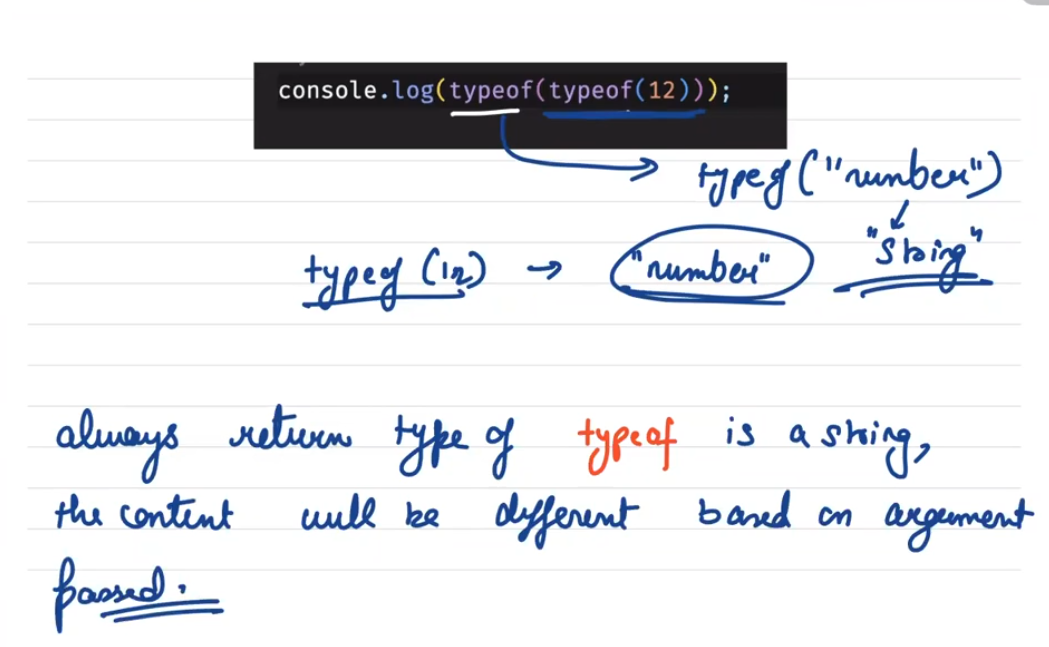 console.log(typeof(typeof(12)));
typeof ("number")
"String"
typeof (12) → "number"
always return type of typeof is a string,
the content will be different based on argument
passed.